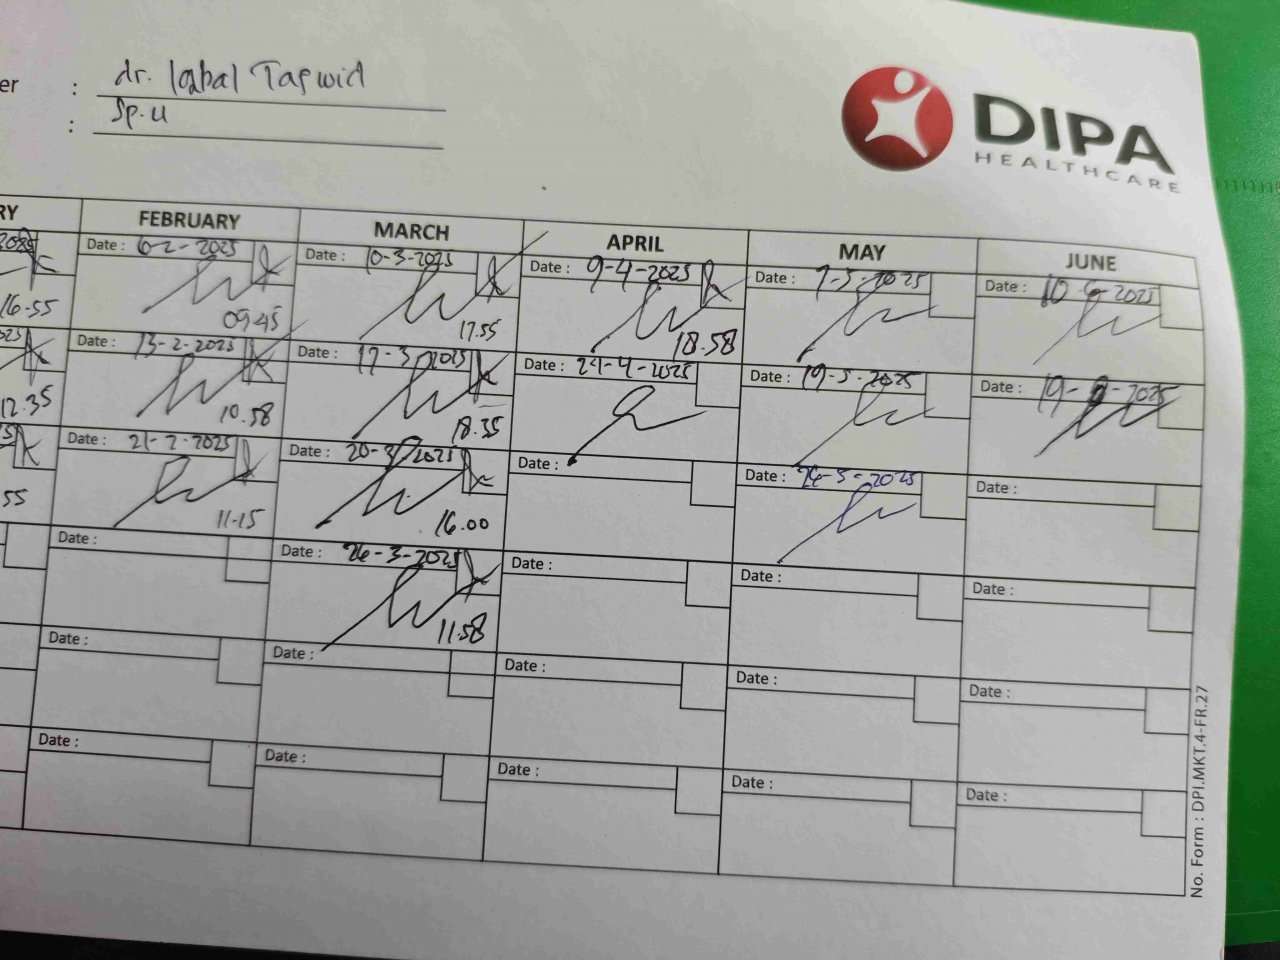 er : dr. Iqbal Taqwid
: Sp.U
DIPA
HEALTHCARE
RY FEBRUARY MARCH APRIL MAY JUNE
2025 Date : 6-2-2025 Date : 10-3-2025 Date : 9-4-2025 Date : 7-5-2025 Date : 10-6-2025
16.55 09.45 17.55 18.58
Date : 13-2-2025 Date : 17-3-2025 Date : 24-4-2025 Date : 19-5-2025 Date : 19- -2025
12.35 10.58 18.35
Date : 21-2-2025 Date : 20-3-2025 Date : Date : 26-5-2025 Date :
55 11.15 16.00
Date : Date : 26-3-2025 Date : Date : Date :
11.58
Date : Date : Date : Date : Date :
Date : Date : Date : Date : Date :
No. Form : DPI.MKT.4-FR.27